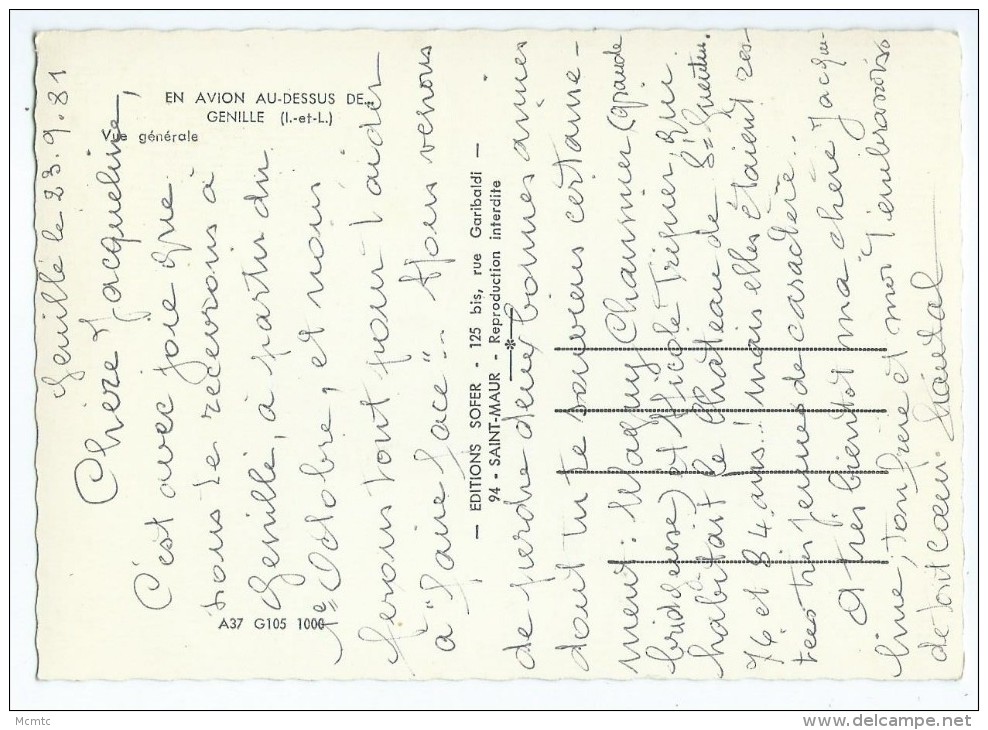 Genillé le 23.9.81
Chère Jacqueline,
C'est avec joie que
nous te recevrons à
Genillé, à partir du
1er Octobre, et nous
ferons tout pour t'aider
à "faire face".. Nous venons
de perdre deux bonnes amies
dont tu te souviens certaine-
ment: Maguy Chaumier (grande
bridgeuse) et Nicole Tréguier qui
habitait le Château de St Quentin.
76 et 84 ans!! mais elles étaient res-
tées très jeunes de caractère..
A très bientôt ma chère Jacque-
line, ton frère et moi t'embrassons
de tout cœur. Chantal
EN AVION AU-DESSUS DE..
GENILLE (I.-et-L.)
Vue générale
— EDITIONS SOFER - 125 bis, rue Garibaldi —
94 - SAINT-MAUR - Reproduction interdite
A37 G105 1000
Mcmtc
http://www.delcampe.net